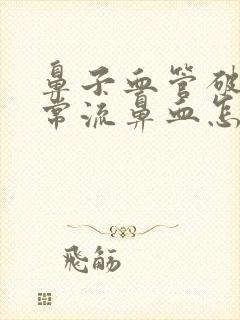 鼻子血管破
常流鼻血怎
飛觞